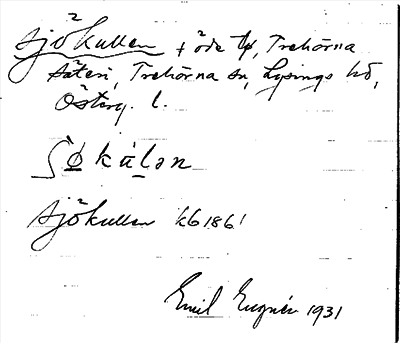 Sjökullen † öde tp, Trehörna
säteri, Trehörna sn, Lysings hd,
Österg. l.
ʃø̀kúlən
Sjökullen kb 1861
Emil Eugnér 1931